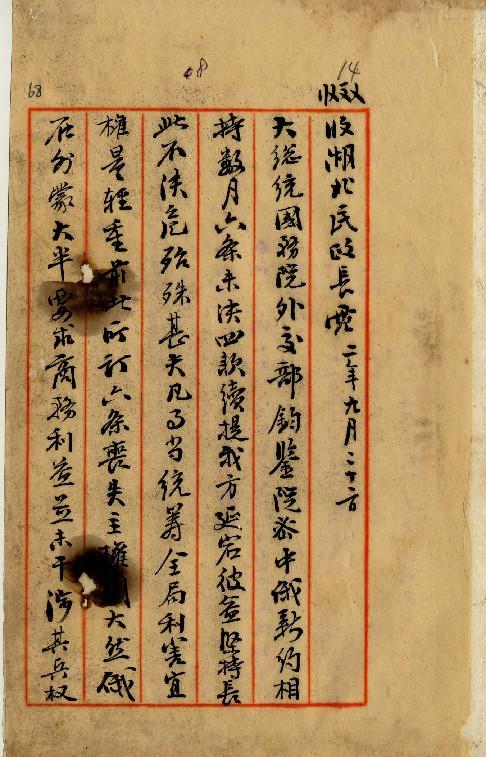 14
68
68
收湖北民政長電 二年九月二十二日
大總統國務院外交部鈞鑒院密中俄新約相
持數月六条未決四款續提我方延宕彼益堅持長
此不決危殆殊甚夫凡事当統籌全局利害宜
權是輕重前此所訂六条喪失主權 大然俄
在外蒙大半要求商務利益並未干涉其兵权